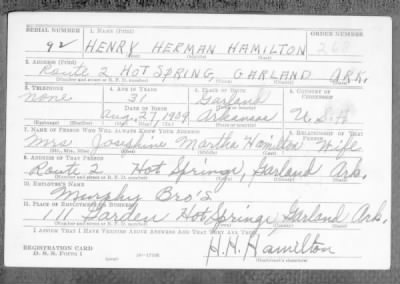 SERIAL NUMBER 1. NAME (Print) ORDER NUMBER
92 HENRY HERMAN HAMILTON 268
(First) (Middle) (Last)
2. ADDRESS (Print)
Route 2 HOT SPRING, GARLAND ARK.
(Number and street or R. F. D. number) (Town) (County) (State)
3. TELEPHONE 4. AGE IN YEARS 5. PLACE OF BIRTH 6. COUNTRY OF CITIZENSHIP
None 31 Garland
DATE OF BIRTH
Aug. 27, 1909 Arkansas U.S.A.
7. NAME OF PERSON WHO WILL ALWAYS KNOW YOUR ADDRESS 8. RELATIONSHIP OF THAT PERSON
Mrs. Josephine Martha Hamilton Wife
(Mr., Mrs., Miss) (First) (Middle) (Last)
9. ADDRESS OF THAT PERSON
Route 2 Hot Springs, Garland Ark.
(Number and street or R. F. D. number) (Town) (County) (State)
10. EMPLOYER'S NAME
Murphy Bro's
11. PLACE OF EMPLOYMENT OR BUSINESS
111 Garden Hot Springs Garland Ark.
(Number and street or R. F. D. number) (Town) (County) (State)
I AFFIRM THAT I HAVE VERIFIED ABOVE ANSWERS AND THAT THEY ARE TRUE.
H.H. Hamilton
REGISTRATION CARD
D. S. S. FORM 1 (over) 16-17105 (Registrant's signature)